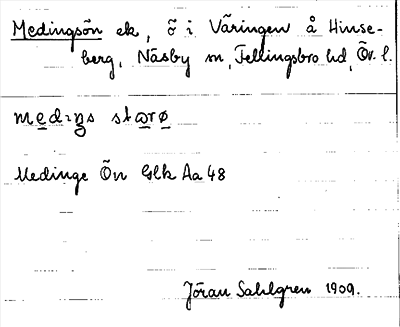 Medingsön ek, ö i Väringen å Hinse-
berg, Näsby sn, Fellingsbro hd, Ör. l.
Medinge Ön Glk Aa 48
Jöran Sahlgren 1909.